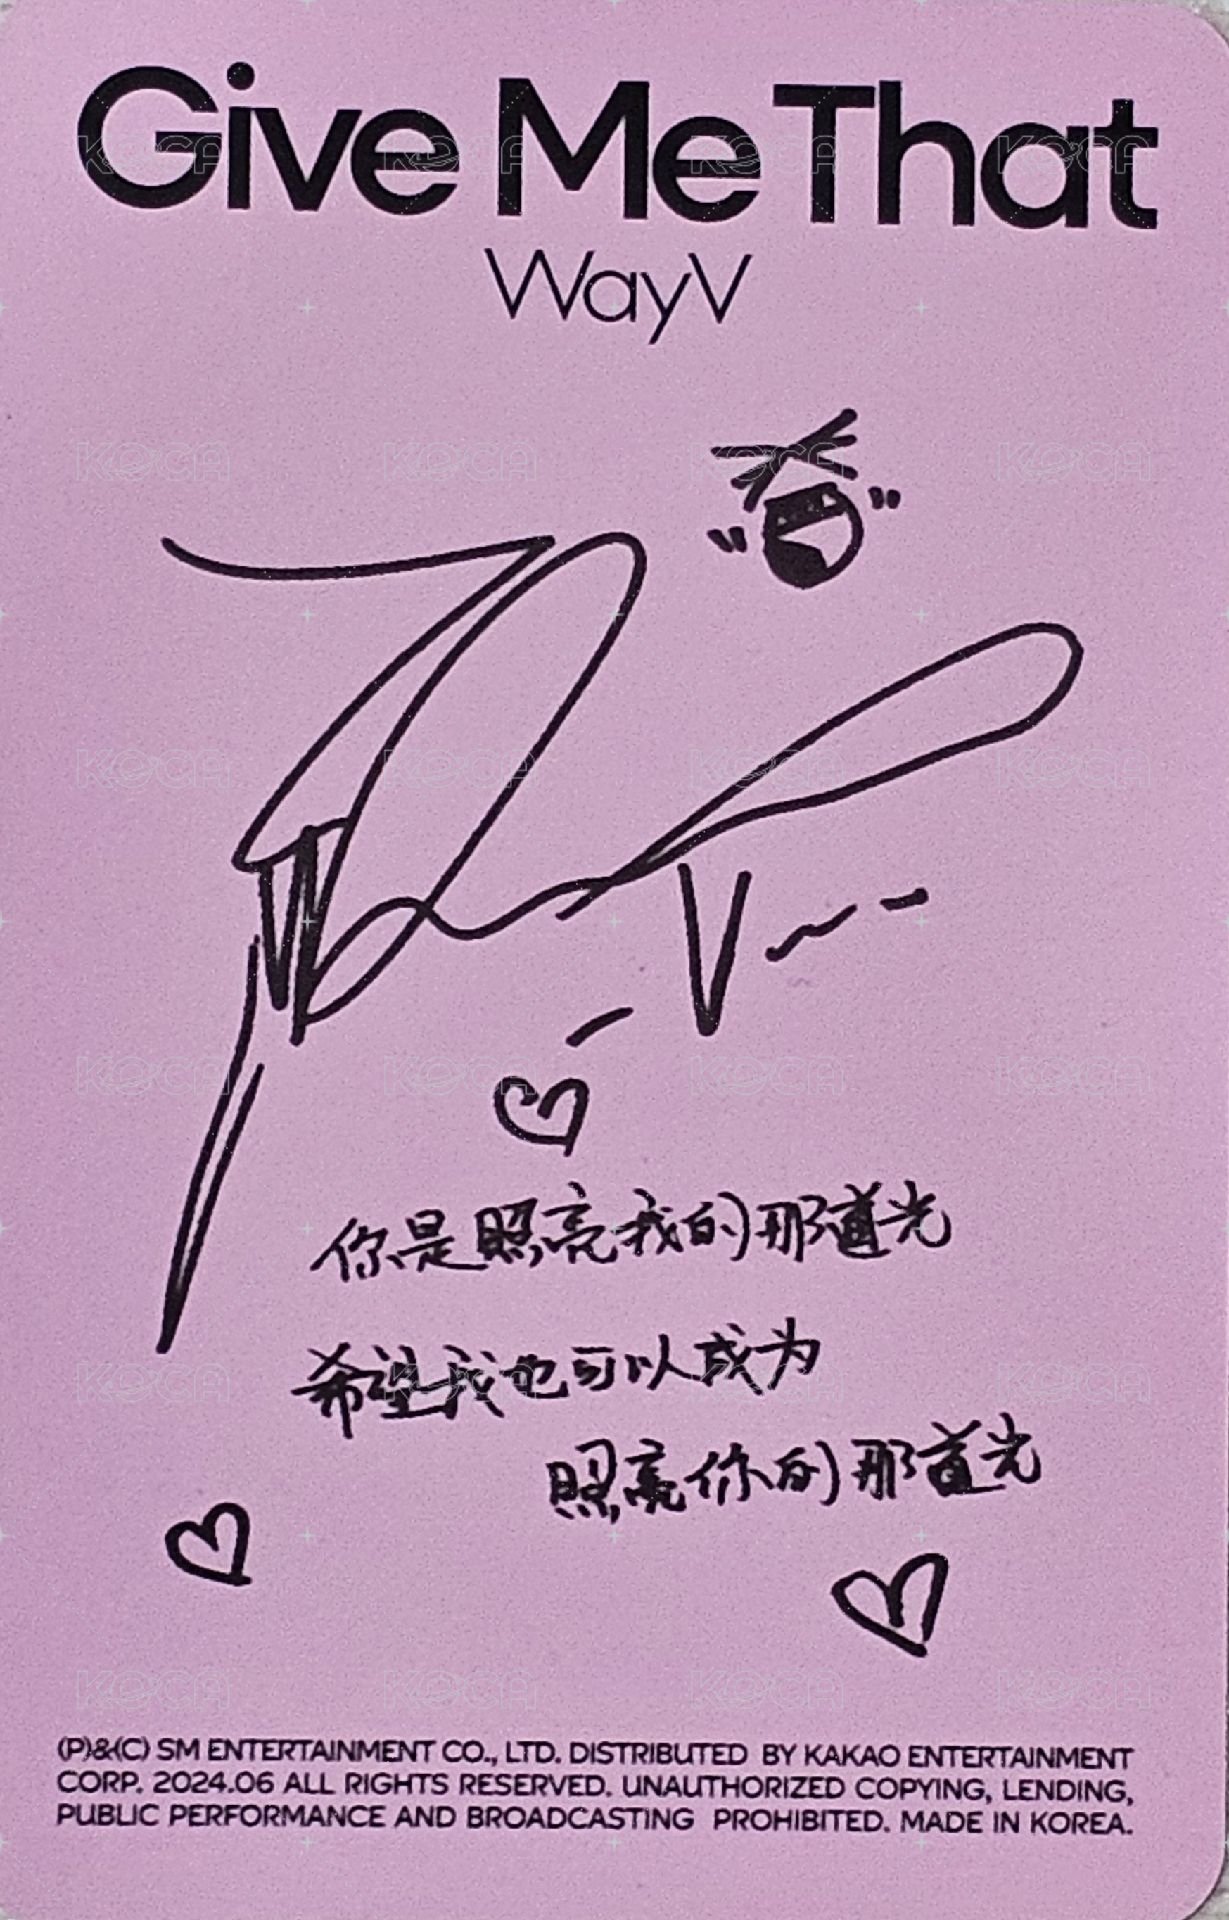 Give Me That
WayV
你是照亮我的那道光
希望我也可以成为
照亮你的那道光
(P)&(C) SM ENTERTAINMENT CO., LTD. DISTRIBUTED BY KAKAO ENTERTAINMENT
CORP. 2024.06 ALL RIGHTS RESERVED. UNAUTHORIZED COPYING, LENDING,
PUBLIC PERFORMANCE AND BROADCASTING PROHIBITED. MADE IN KOREA.